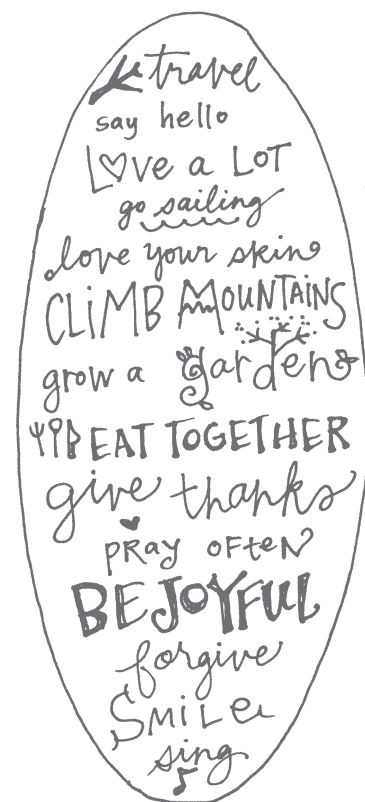 travel
say hello
Love a LOT
go sailing
love your skin
CLiMB MOUNTAiNS
grow a garden
EAT TOGETHER
give thanks
pRay oFteN
BE JOYFUL
forgive
SMiLe
sing